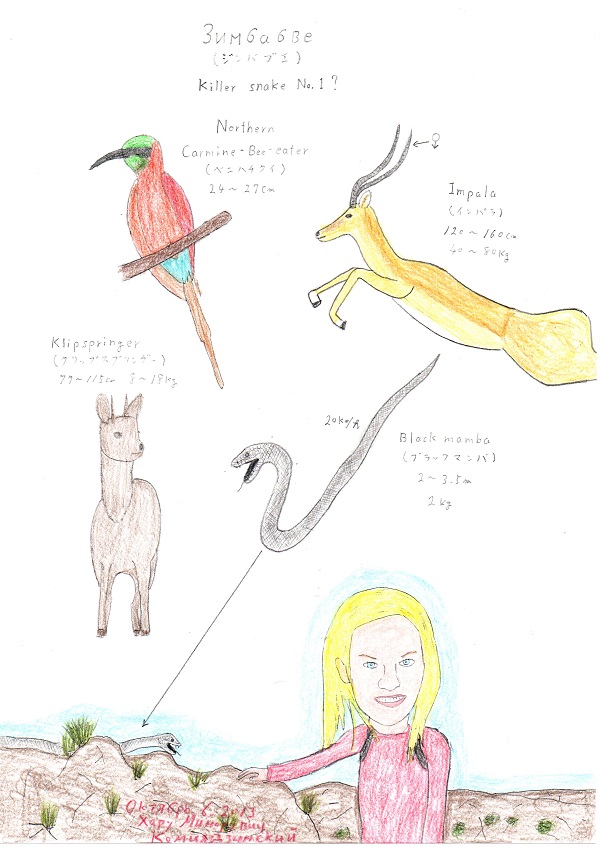 Зимбабве
(ジンバブエ)
Killer snake No.1?
Northern
Carmine-Bee-eater
(ベニハチクイ)
24〜27cm
♀
Impala
(インパラ)
120〜160cm
40〜80kg
Klipspringer
(クリップスプリンガー)
77〜115cm 8〜18kg
20km/h
Black mamba
(ブラックマンバ)
2〜3.5m
2kg
Октябрь 6